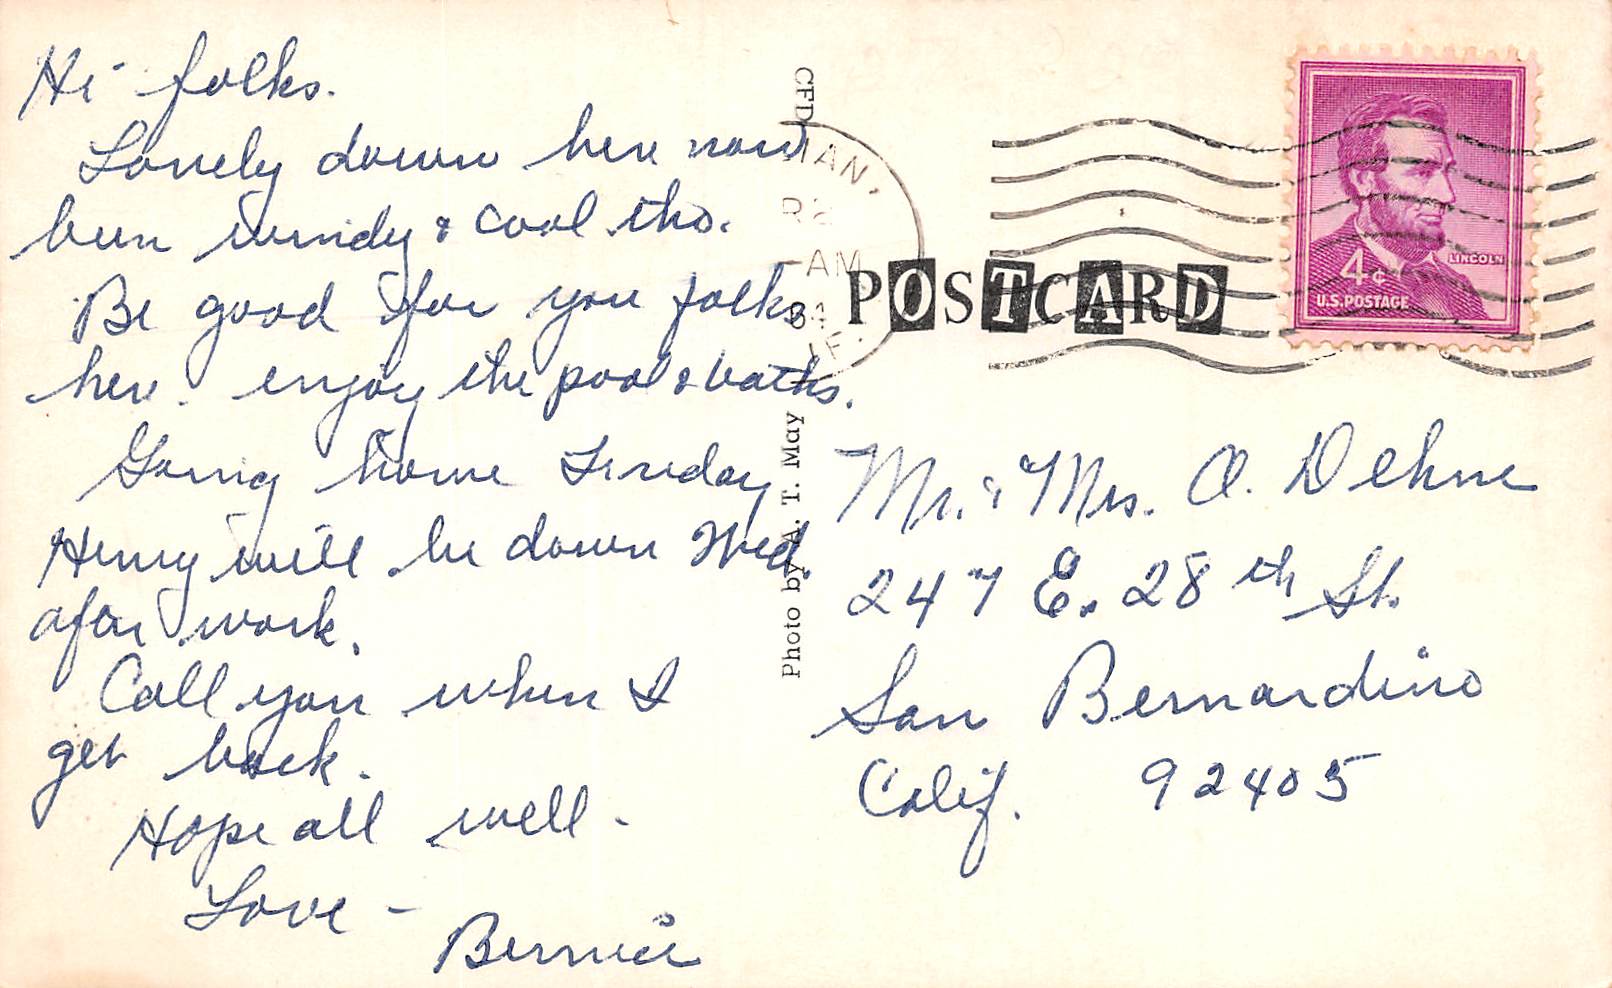 Hi folks.
Lonely down here now
been windy & cool tho.
Be good for you folks
here. enjoy the pool & baths.
Going home Sunday
Henry will be down Wed.
after work.
Call you when I
get back.
Hope all well.
Love -
Bernice
CFD
Photo by A. T. May
AM
POSTCARD
LINCOLN
4¢
U.S. POSTAGE
Mr. & Mrs. O. Dehne
247 E. 28th St.
San Bernardino
Calif. 92405